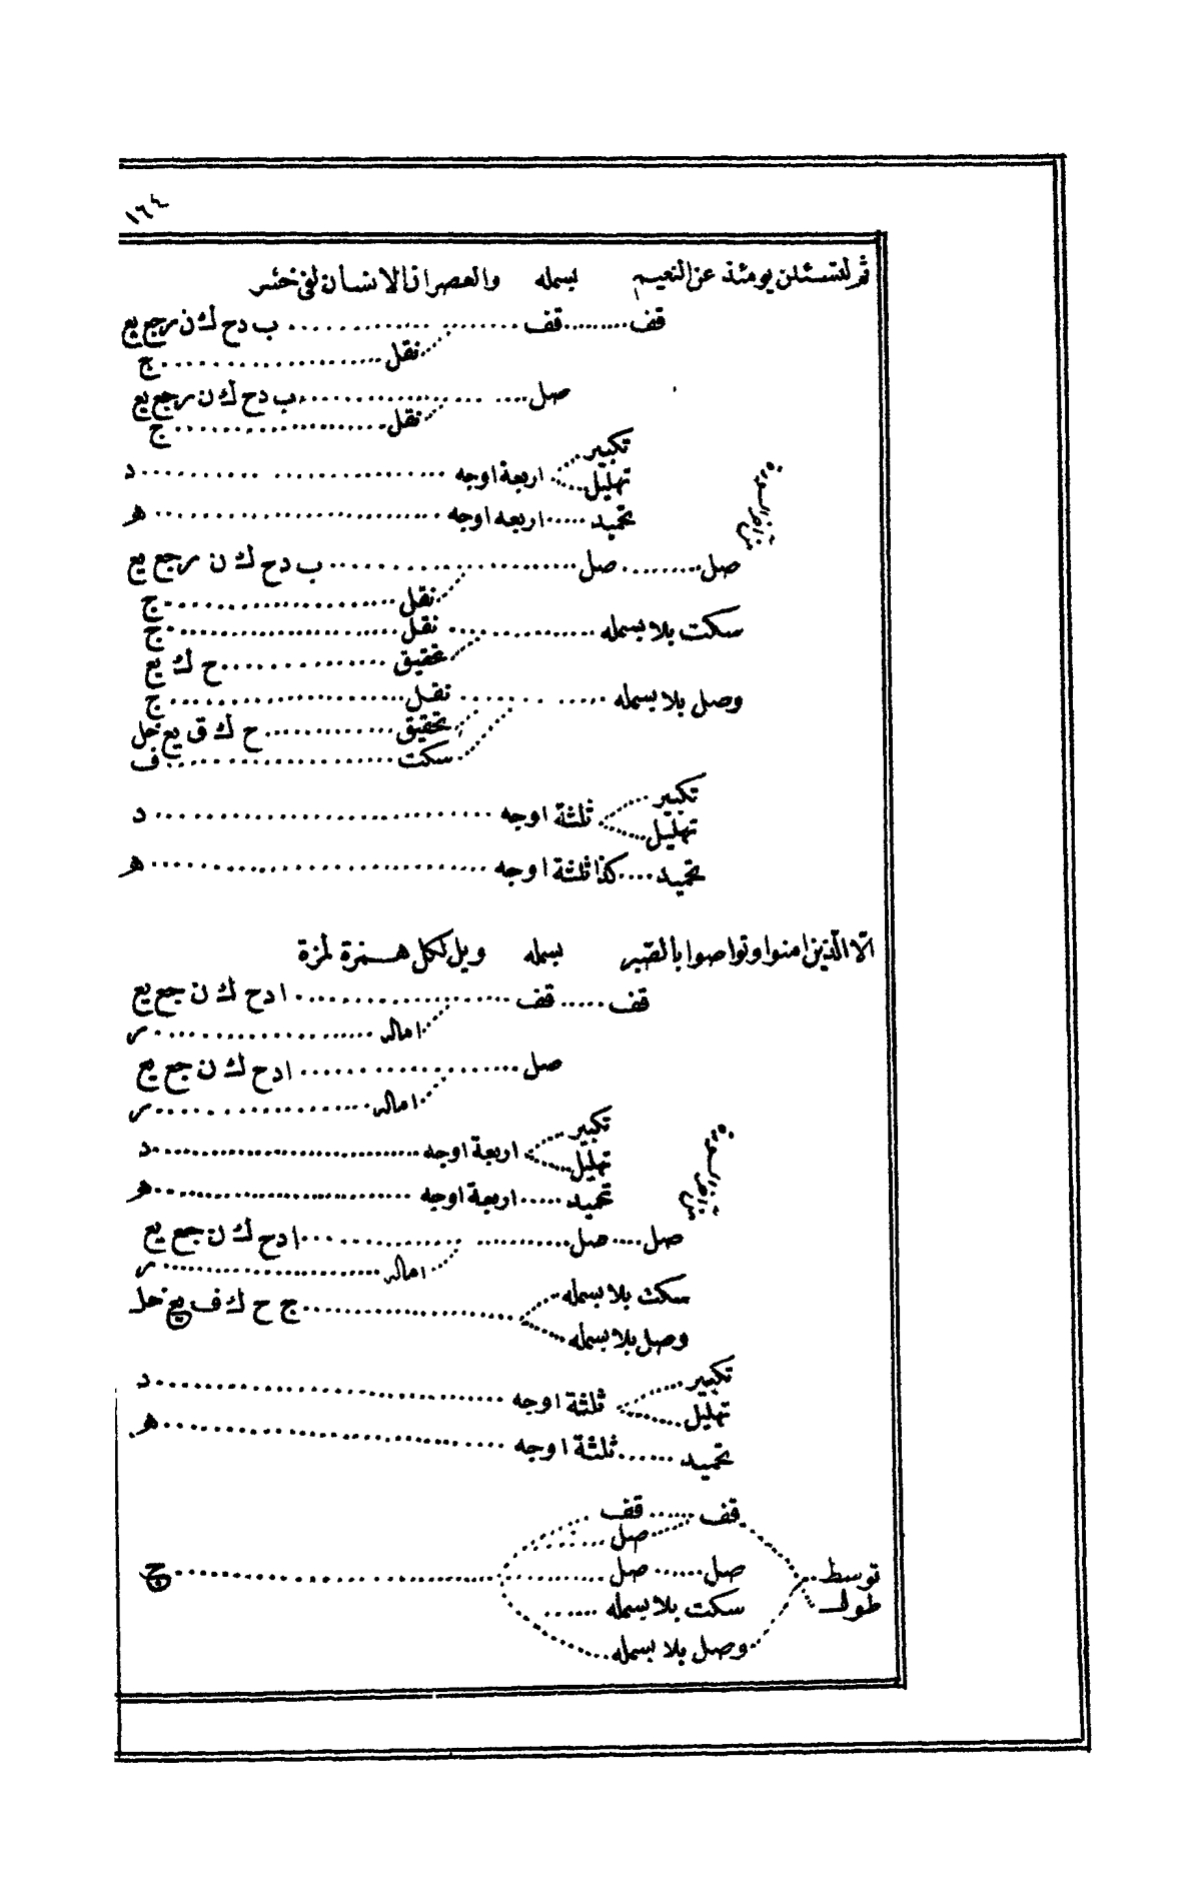 ١٦٤
ثم لتسئلن يومئذ عن النعيم بسمله والعصر ان الانسان لفى خسر
قف ........ قف ........ ب د ح ك ن ر جع يع
نقل ........ ج
صل ........ ب د ح ك ن ر جع يع
نقل ........ ج
تكبير
تهليل ... اربعة اوجه ........ د
تحميد ..... اربعه اوجه ........ هـ
من آخر السورة
صل ........ صل ........ ب د ح ك ن ر جع يع
نقل ........ ج
سكت بلا بسمله ........ نقل ........ ج
تحقيق ........ ح ك يع
وصل بلا بسمله ........ نقل ........ ج
تحقيق ........ ح ك ق يع خل
سكت ........ ف
تكبير
تهليل ... ثلثة اوجه ........ د
تحميد .... كذا ثلثة اوجه ........ هـ
الّا الّذين امنوا وتواصوا بالصّبر بسمله ويل لكل همزة لمزة
قف ..... قف ........ ا د ح ك ن جع يع
اماله ........ ر
صل ........ ا د ح ك ن جع يع
اماله ........ ر
تكبير
تهليل ... اربعة اوجه ........ د
تحميد ..... اربعة اوجه ........ هـ
من آخر السورة
صل .... صل ........ ا د ح ك ن جع يع
اماله ........ ر
سكت بلا بسمله
وصل بلا بسمله ........ ج ح ك ف يع خل
تكبير
تهليل ... ثلثة اوجه ........ د
تحميد ...... ثلثة اوجه ........ هـ
قف ...... قف
صل
توسط ... صل ...... صل ........ ج
طول ... سكت بلا بسمله ......
وصل بلا بسمله